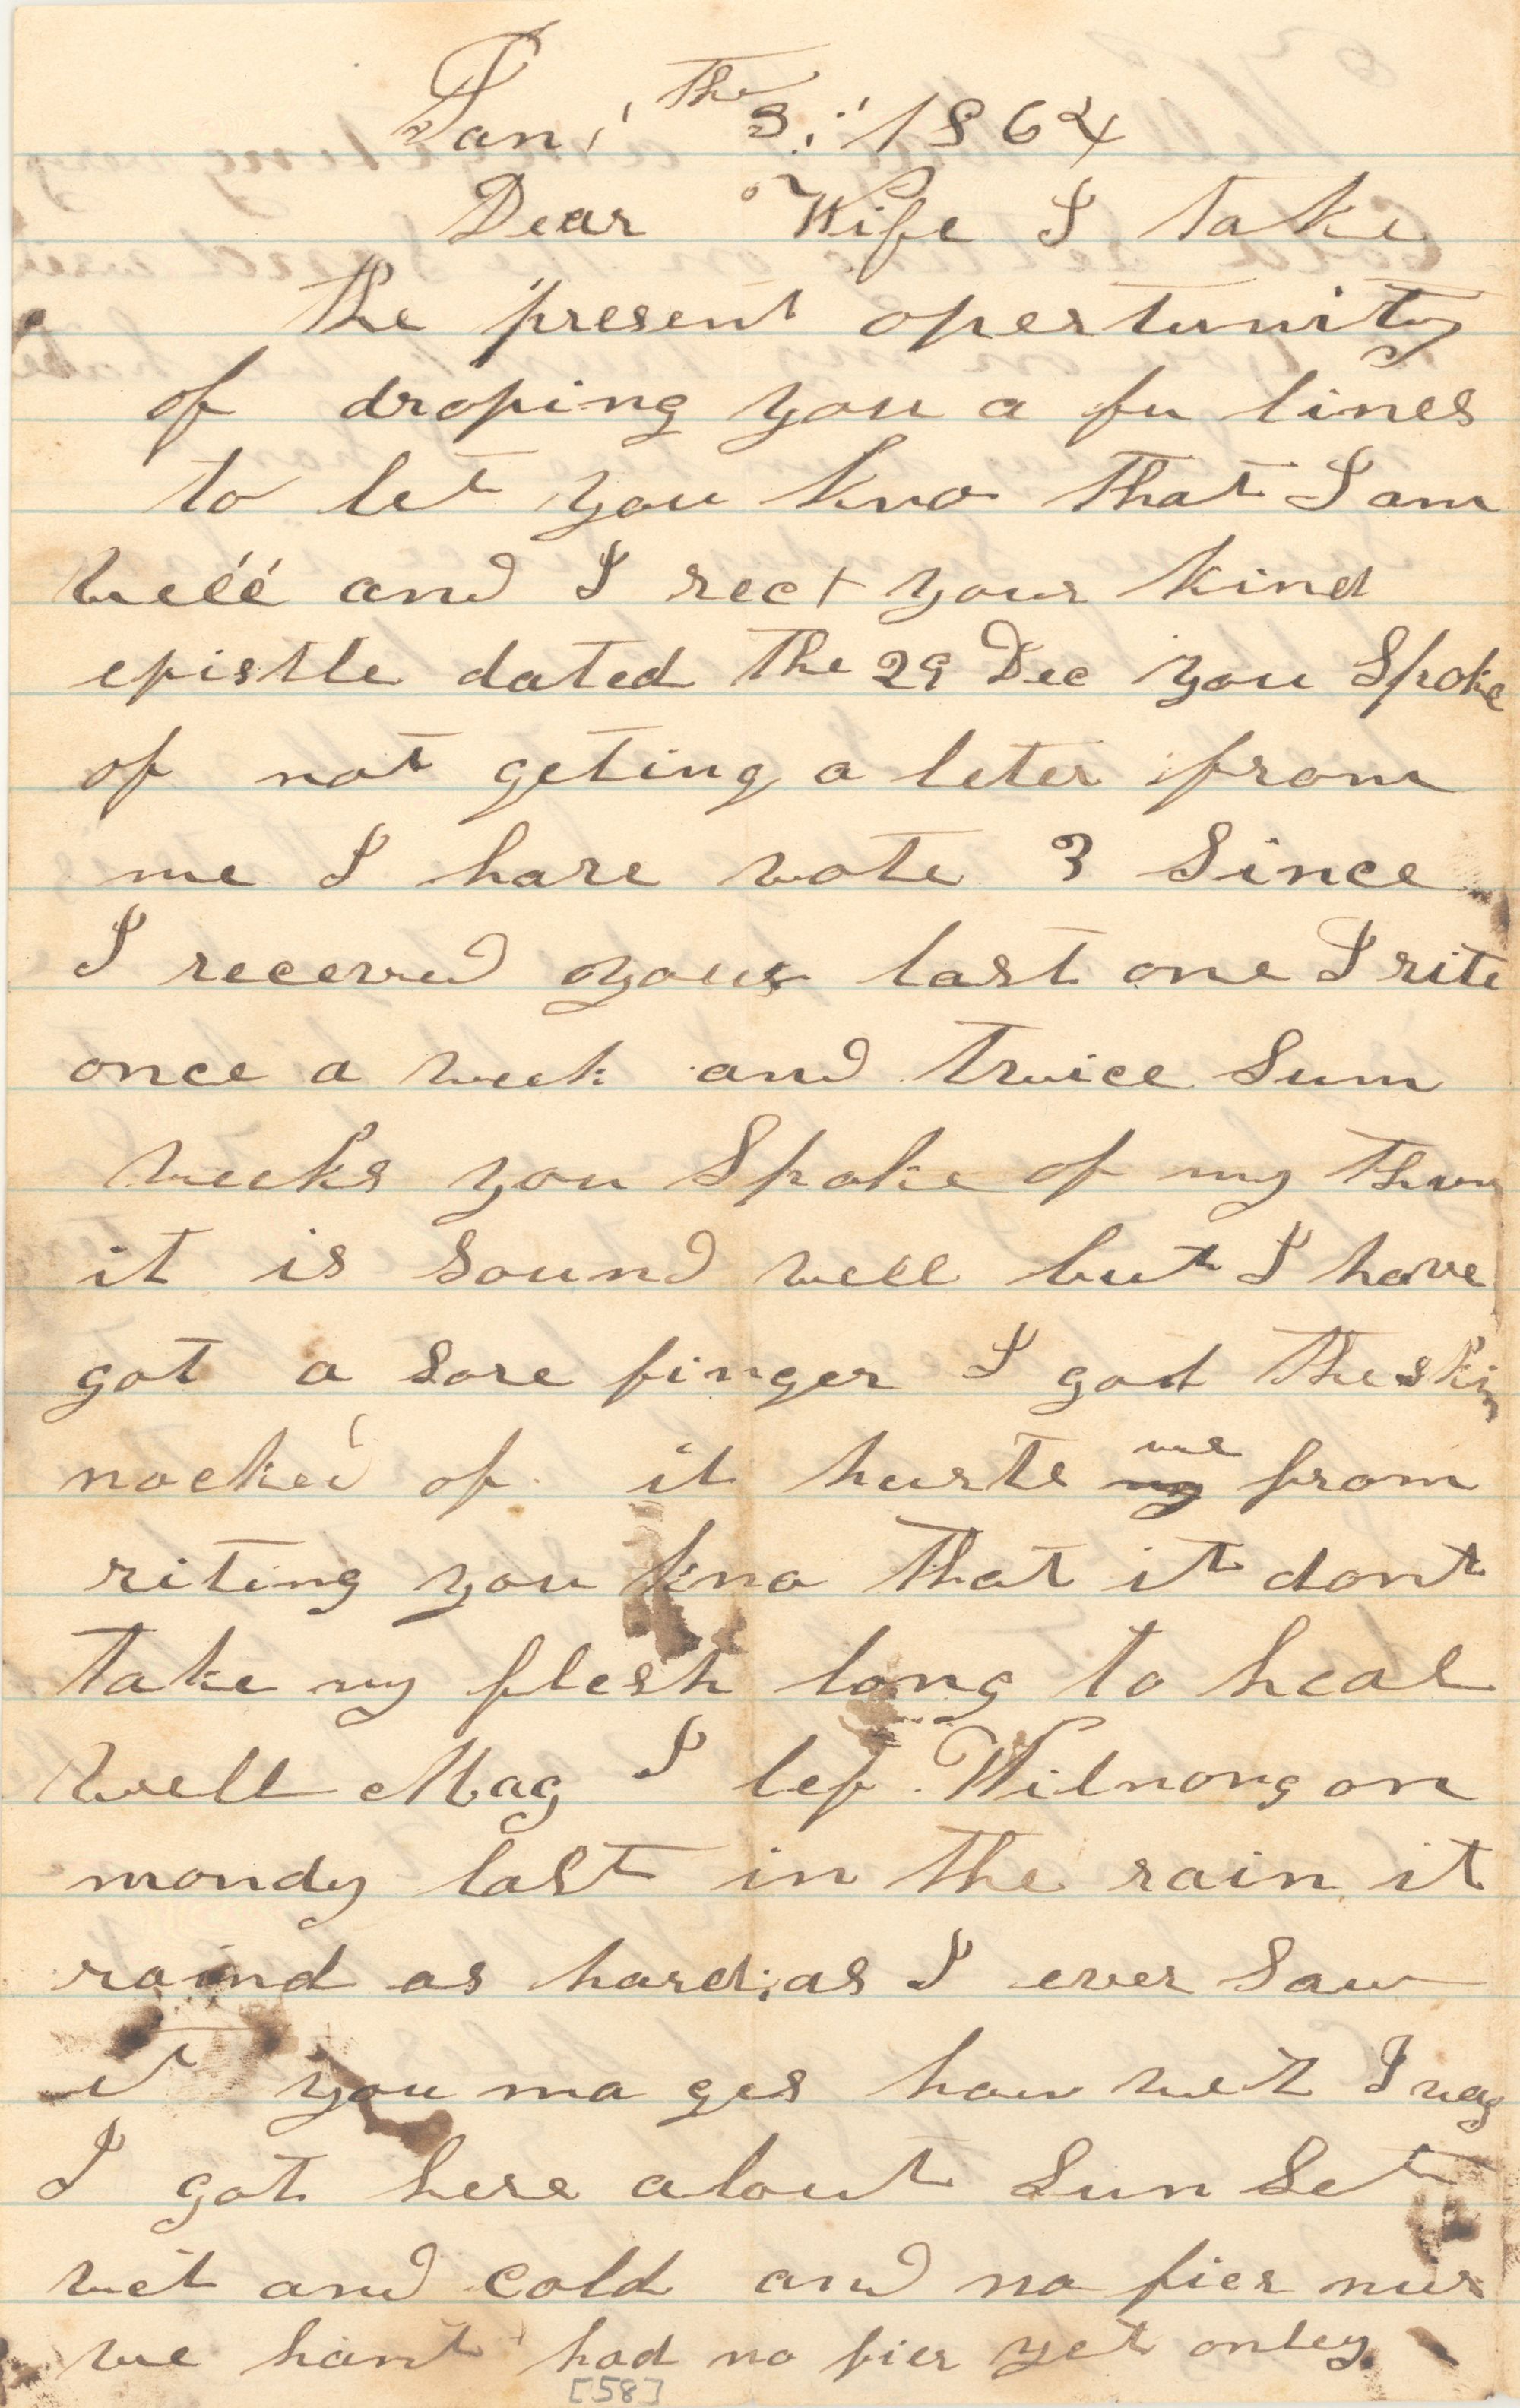 Jan, the 3: 1864
Dear Wife I take
the present opertunity
of droping you a fu lines
to let you kno that I am
well and I rect your kind
epistle dated the 29 Dec you Spoke
of not geting a leter from
me I have wote 3 Since
I receved your last one I rite
once a week and twice Sum
weeks you Spoke of my thum
it is Sound well but I have
got a Sore finger I got the skin
nocked of it hurts my me from
riting you kno that it dont
take my flesh long to heal
well Mag I lef Wilnongon
mondy last in the rain it
raind as hard as I ever Saw
it you ma ges how wet I was
I got here about Sun Set
wet and cold and no fier nur
we hant had no fier yet onley
[58]